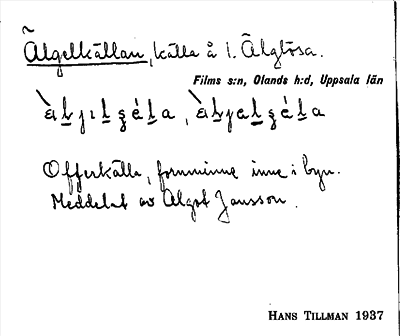 Älgelkällan, källa å l. Älglösa.
Films s:n, Olands h:d, Uppsala län
Offerkälla, fornminne inne i byn.
Meddelat av Algot Jansson.
HANS TILLMAN 1937